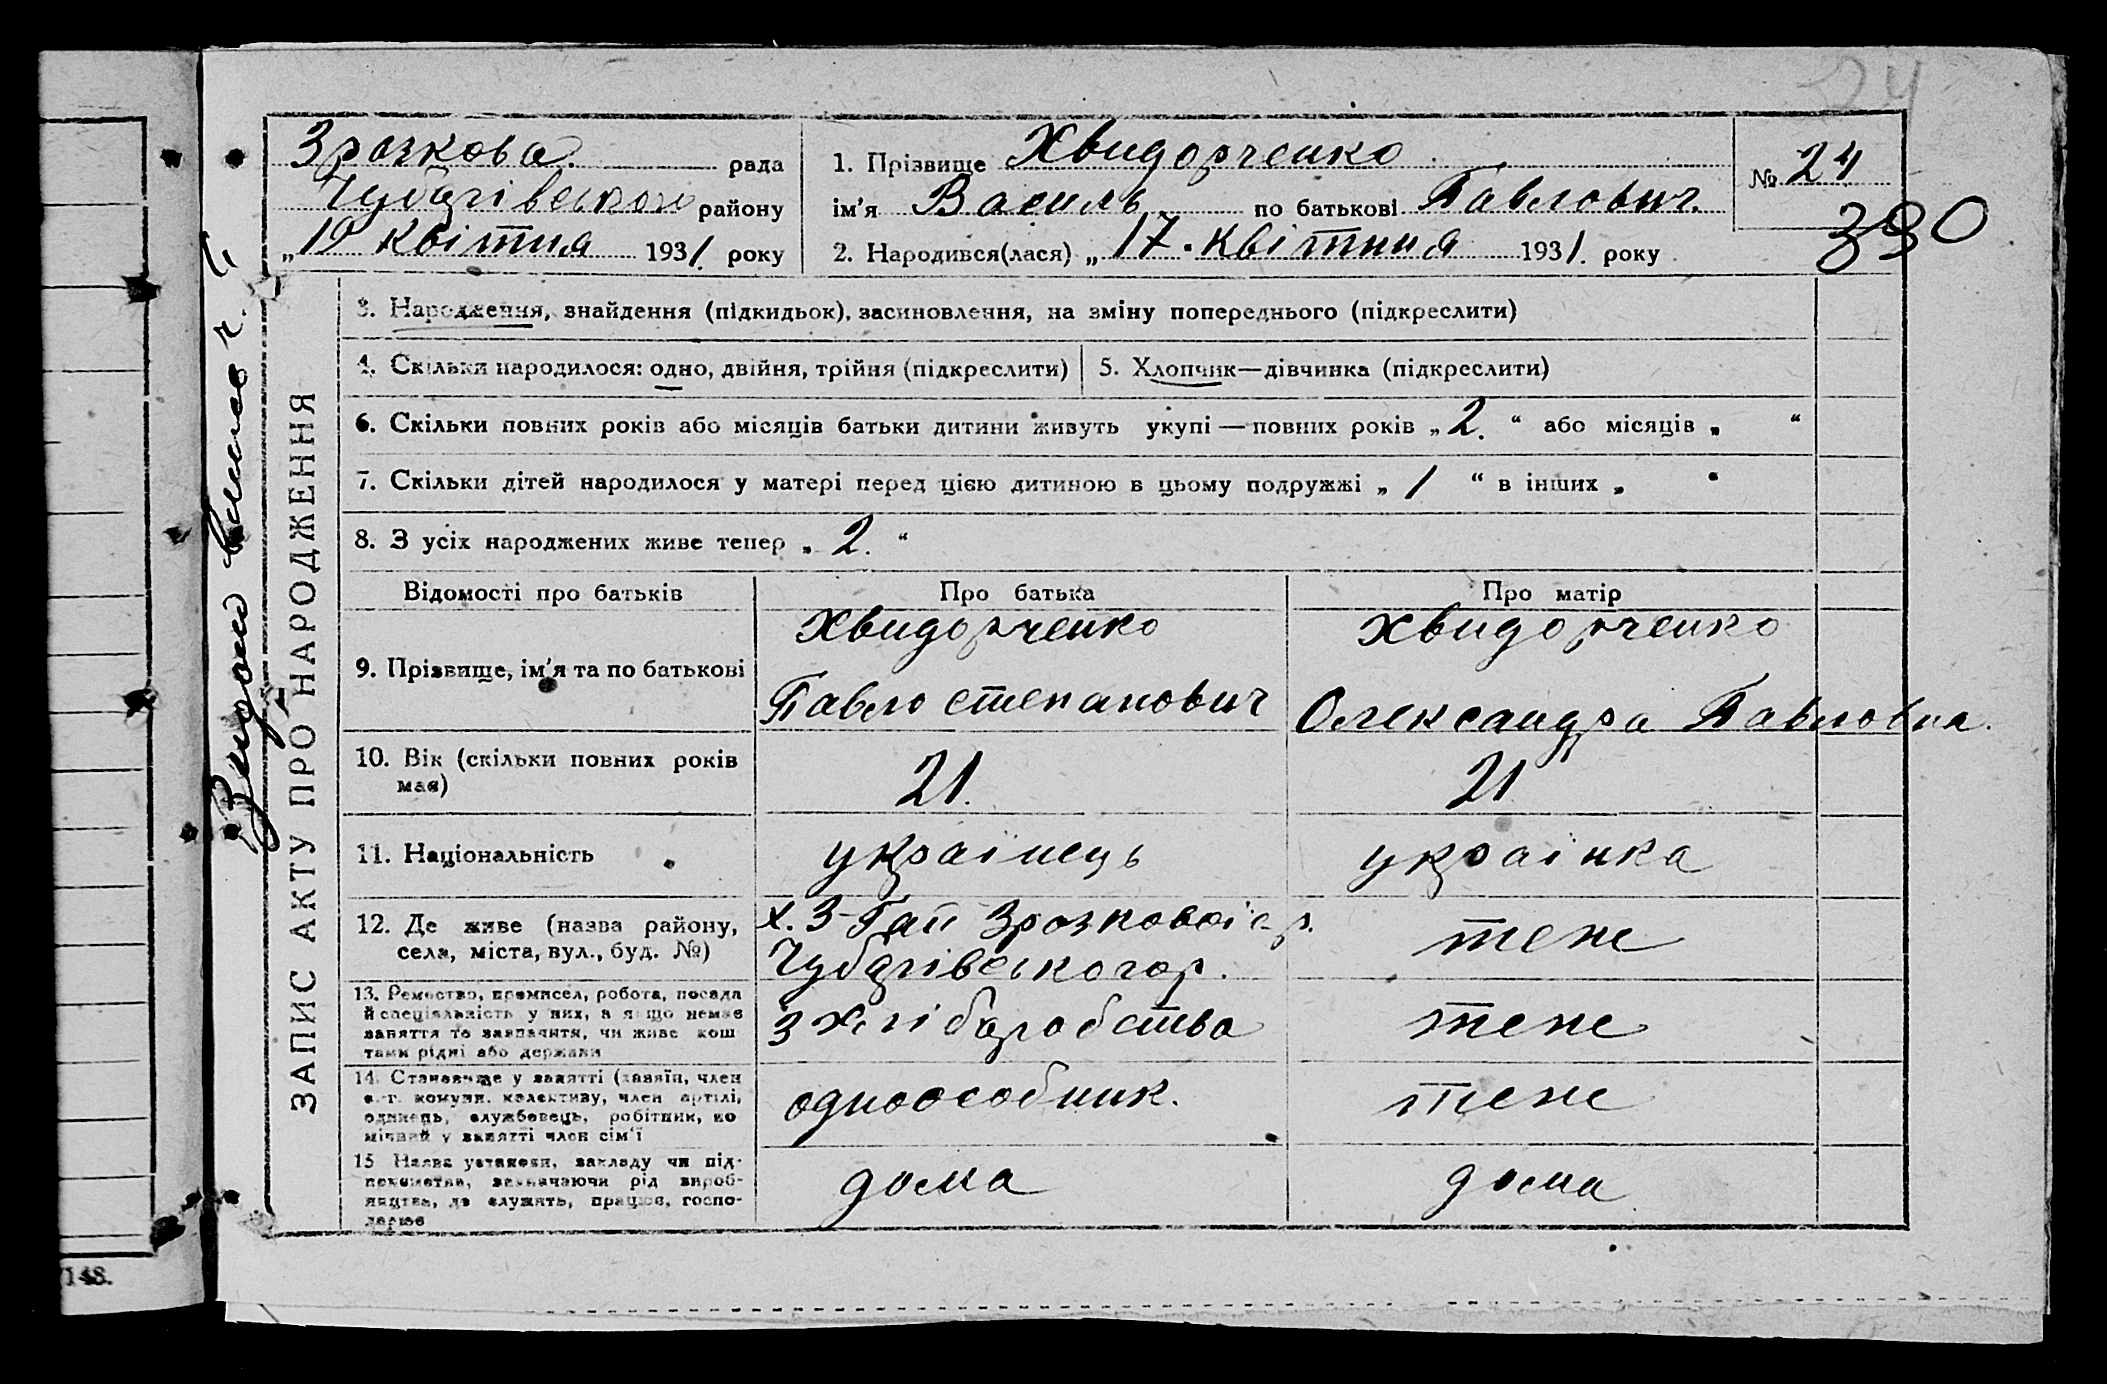 24
Зразкова рада
Чубарівського району
„19 квітня 1931. року
1. Прізвище Хвидорченко
ім'я Василь по батькові Павлович.
2. Народився(лася) „17. квітния 1931. року
№ 24
330
ЗАПИС АКТУ ПРО НАРОДЖЕННЯ
3. Народження, знайдення (підкидьок), засиновлення, на зміну попереднього (підкреслити)
4. Скільки народилося: одно, двійня, трійня (підкреслити)
5. Хлопчик—дівчинка (підкреслити)
6. Скільки повних років або місяців батьки дитини живуть укупі — повних років „2.“ або місяців „ “
7. Скільки дітей народилося у матері перед цією дитиною в цьому подружжі „1“ в інших „ “
8. З усіх народжених живе тепер „2.“
Відомості про батьків Про батька Про матір
9. Прізвище, ім'я та по батькові
Хвидорченко
Павло степанович
Хвидорченко
Олександра Павловна.
10. Вік (скільки повних років
має)
21.
21
11. Національність українець українка
12. Де живе (назва району,
села, міста, вул., буд. №)
х. 3-Гай Зразкової с.р.
Чубарівського р.
теж
13. Ремество, промисел, робота, посада
й спеціяльність у них, а якщо немає
заняття то зазначити, чи живе кош
тами рідні або держави
з хліборобства
теж
14. Становище у занятті (хазяїн, член
с.-г. комуни, колективу, член артілі,
одинець, службовець, робітник, по
мічний у занятті член сім'ї
одноособник.
теж
15 Назва установи, закладу чи під-
приємства, зазначаючи рід вироб-
ництва, де служить, працює, госпо-
дарює
дома
дома
148.